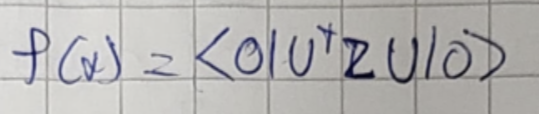 f(x) = <0|U†ZU|0>